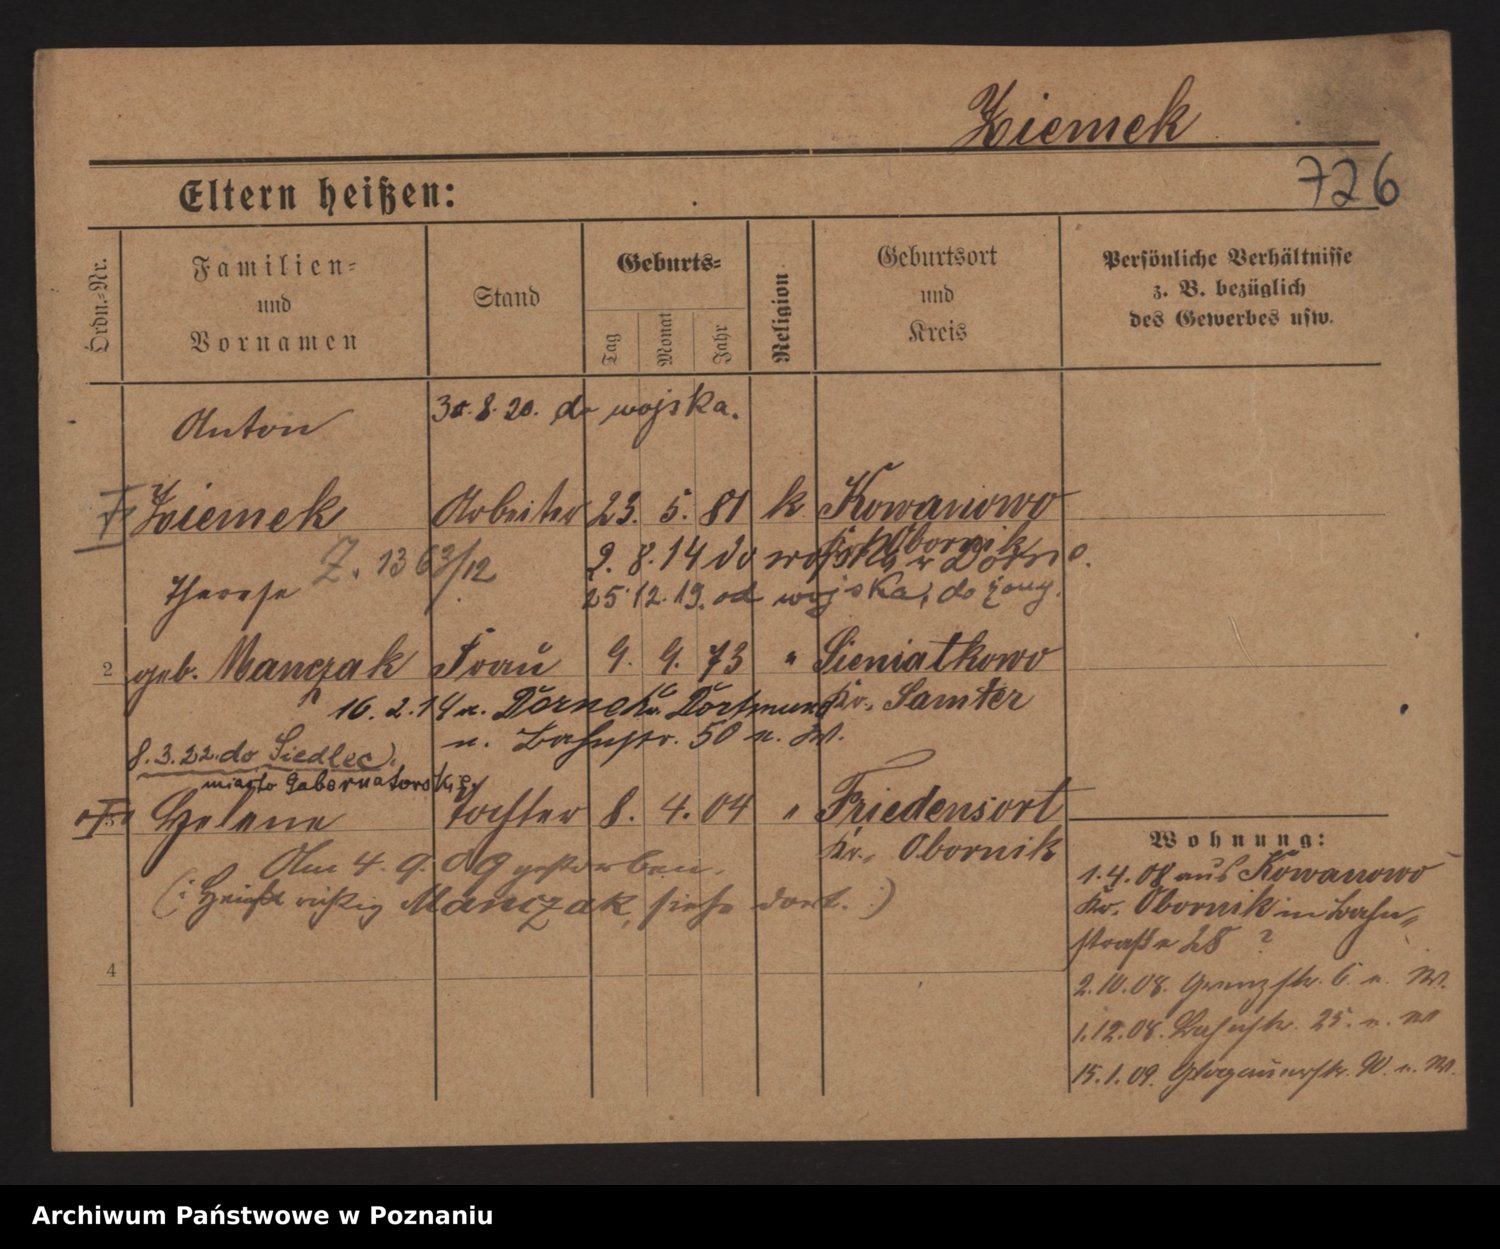 Ziemek
726
Eltern heißen:
Ordn.-Nr.
Familien-
und
Vornamen
Stand
Geburts-
Tag
Monat
Jahr
Religion
Geburtsort
und
Kreis
Persönliche Verhältnisse
z. B. bezüglich
des Gewerbes usw.
Anton
30.8.20. do wojska.
Ziemek Arbeiter 23. 5. 81 k Kowanowo
Kr. Obornik
Z. 1363/12
2. 8. 14 do wojska
25 12. 19. od wojska, do żony.
Therese
2 geb. Manczak Frau 9. 9. 73 " Sieniatkowo
Kr. Samter
16. 2. 14 n. Dortmund
n. Bahnstr. 50 n. W.
8.3.22. do Siedlec.
miasto Gubernatorskie
3 Helene Tochter 8. 4. 04 " Friedensort
Kr. Obornik
Am 4. 9. 09 gestorben.
(: Heißt richtig Manczak, siehe dort. :)
4
Wohnung:
1.4.08 aus Kowanowo
Kr. Obornik in Bahn-
straße 28 ?
2.10.08. Grenzstr. 6 n. W.
1.12.08. Bahnstr. 25. n. W
15.1.09. Glogauerstr. 90. n. W.
Archiwum Państwowe w Poznaniu